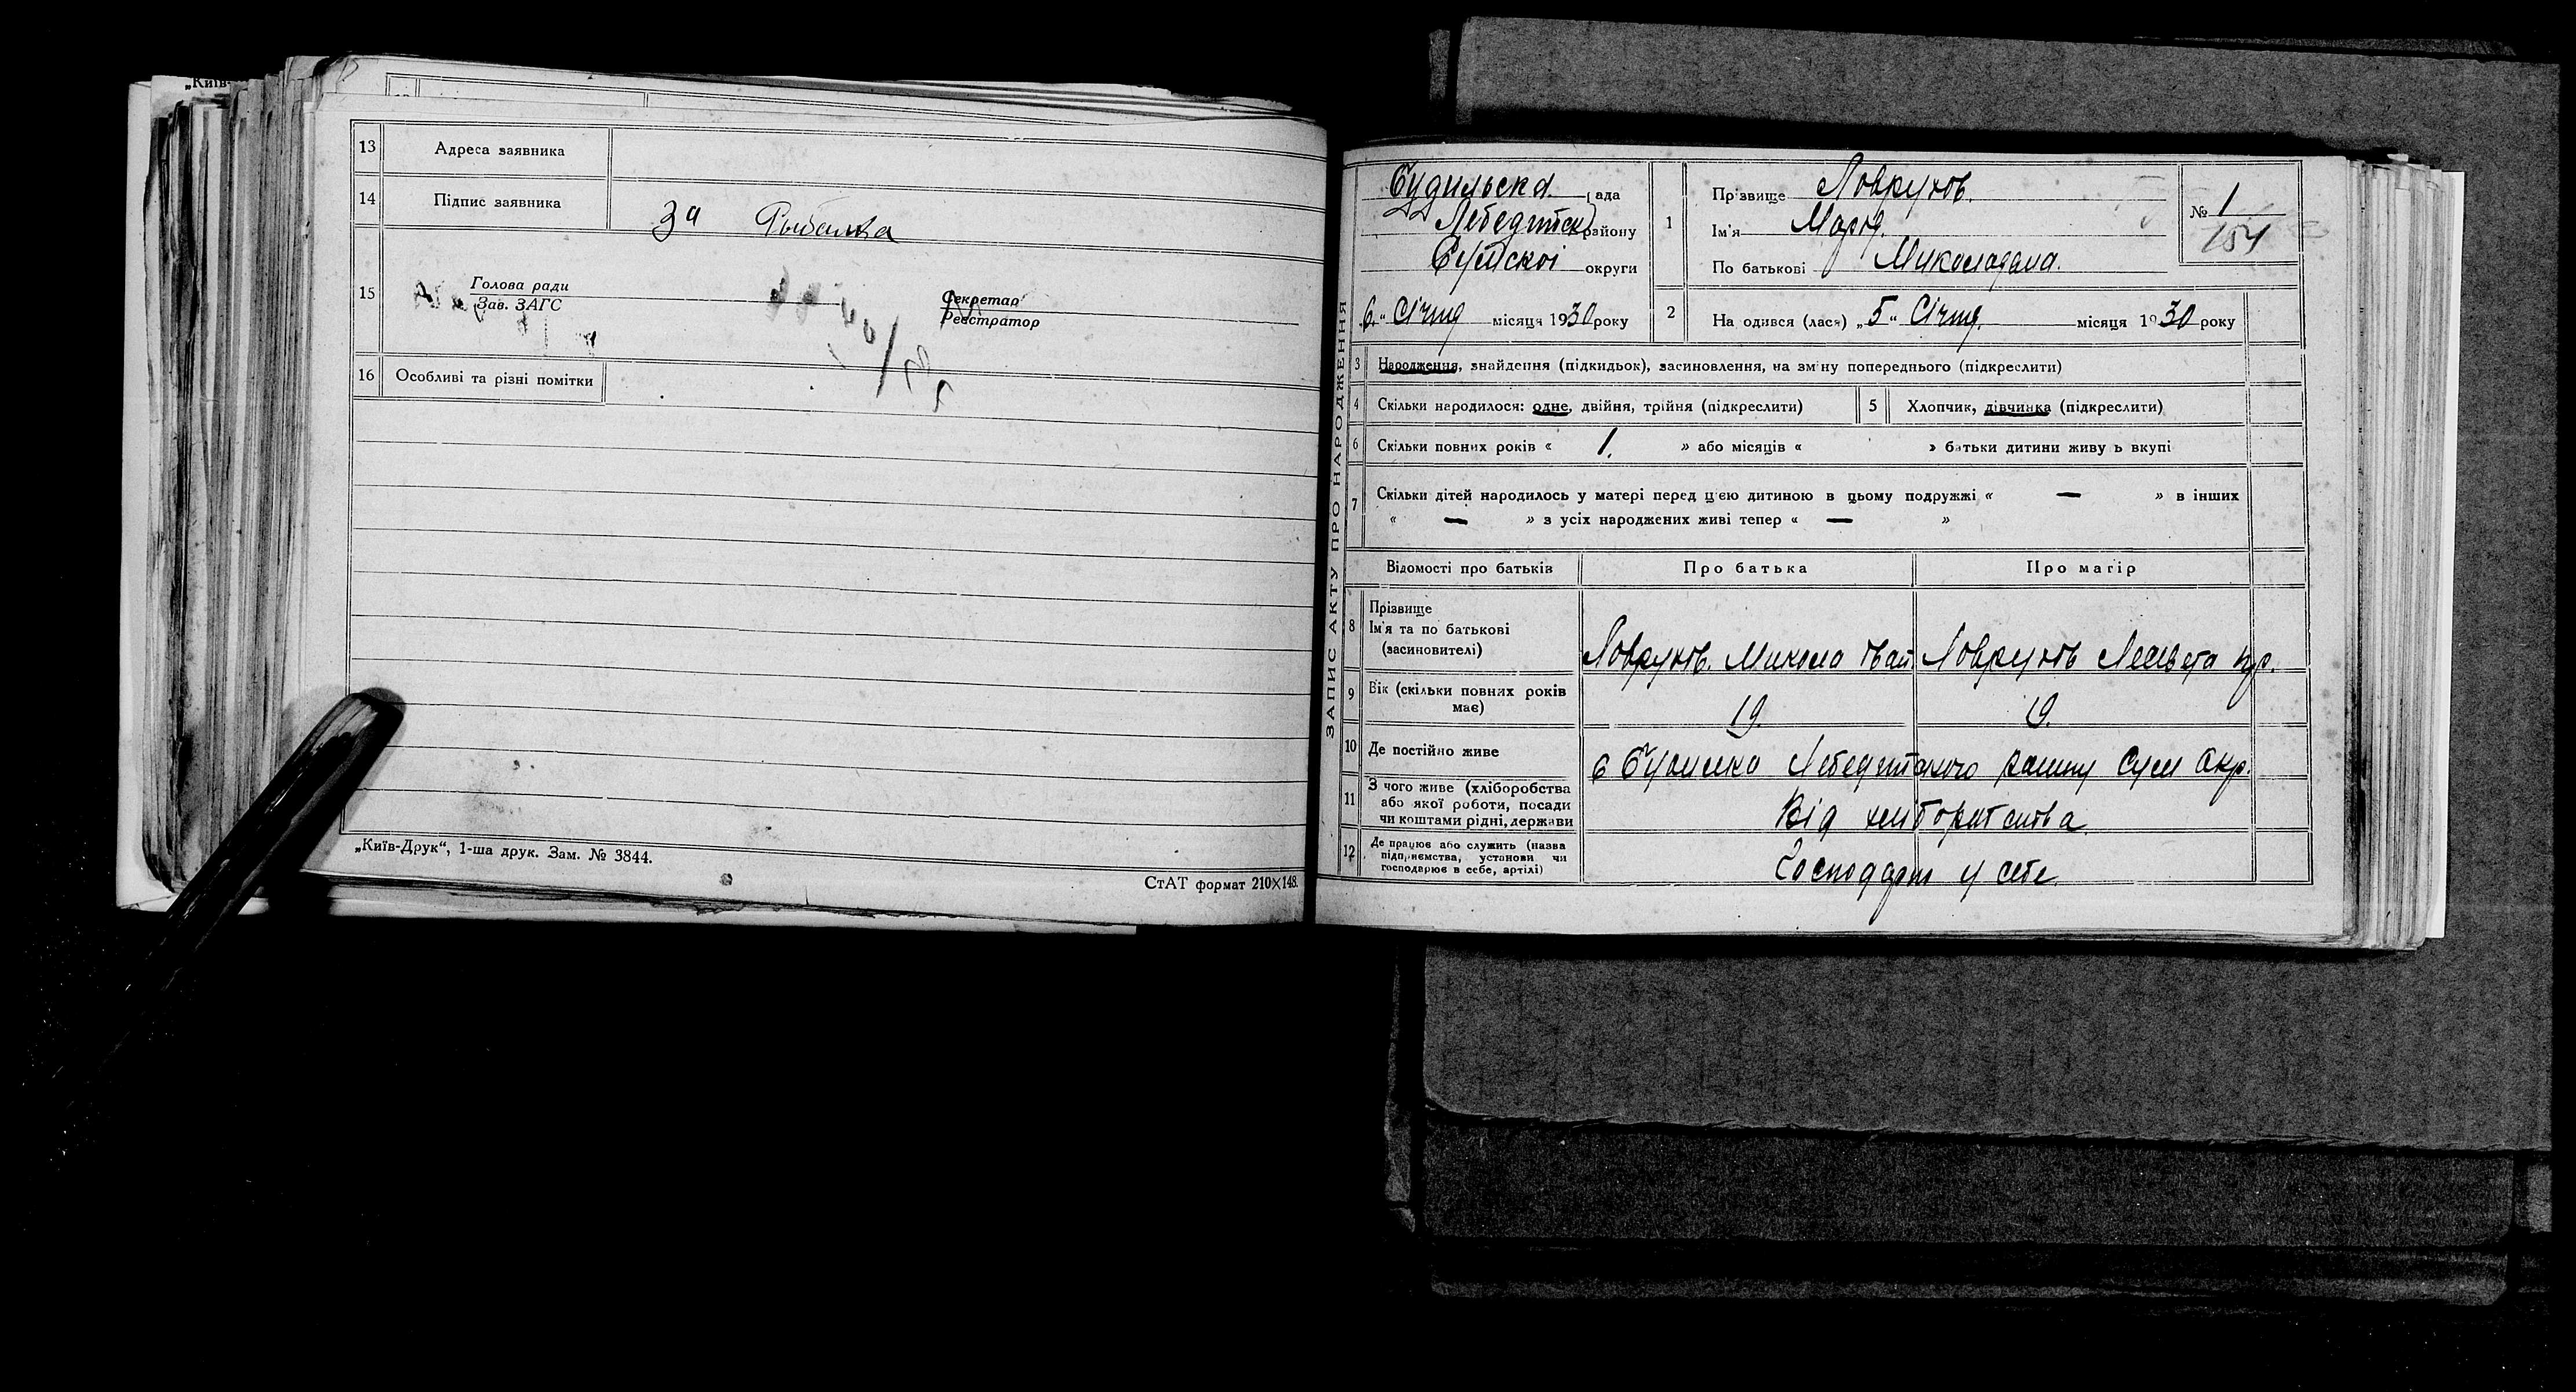 „Київ-
13 Адреса заявника
14 Підпис заявника За Рыбалка
15 Голова ради
Зав. ЗАГС
Секретар
Реєстратор
16 Особливі та різні помітки
„Київ-Друк“, 1-ша друк. Зам. № 3844.
СтАТ формат 210×148.
ЗАПИС АКТУ ПРО НАРОДЖЕННЯ
Будильська рада
Лебединск району
Сумскоі округи
„6“ Січня місяця 1930 року
1 Прізвище
Ім'я Марія.
По батькові Миколаєвна.
№ 1
154
2 На одився (лася) „5“ Січня. місяця 1930 року
3 Народження, знайдення (підкидьок), засиновлення, на зміну попереднього (підкреслити)
4 Скільки народилося: одне, двійня, трійня (підкреслити) 5 Хлопчик, дівчинка (підкреслити)
6 Скільки повних років « 1. » або місяців « » батьки дитини живу ь вкупі
7 Скільки дітей народилось у матері перед цією дитиною в цьому подружжі « — » в інших
« — » з усіх народжених живі тепер « — »
Відомості про батьків Про батька Про матір
8 Прізвище
Ім'я та по батькові
(засиновителі)
Микола Іван.
9 Вік (скільки повних років
має)
19. 19.
10 Де постійно живе
с Будилка Лебединского району Сум Окр.
11 З чого живе (хліборобства
або якої роботи, посади
чи коштами рідні, держави
Від хліборобства
12 Де працює або служить (назва
підприємства, установи чи
господарює в себе, артілі)
Господарт у себе.